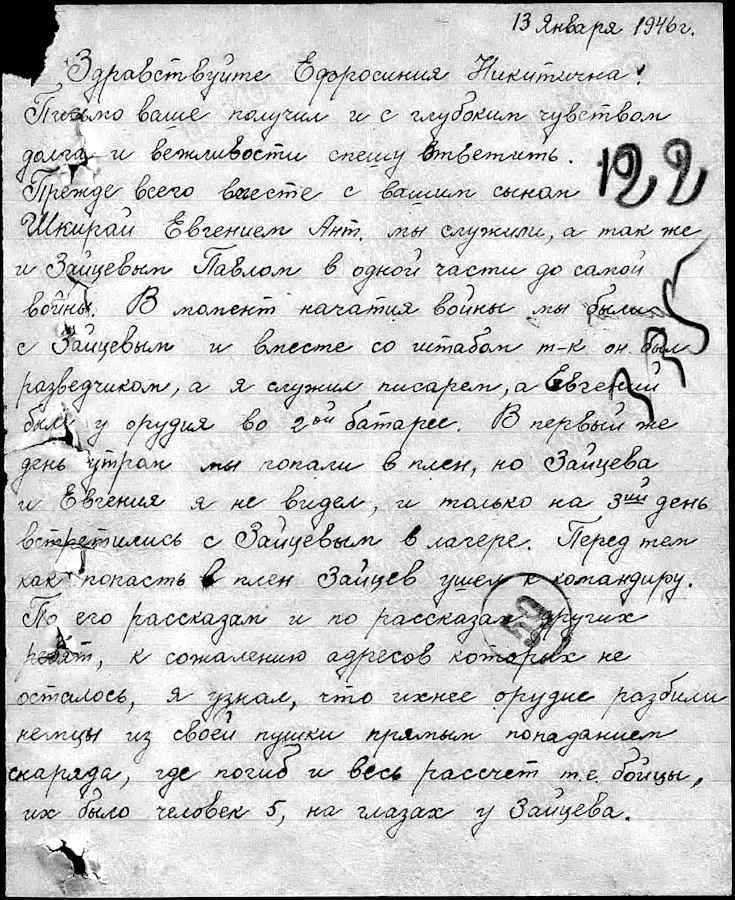 13 Января 1946 г.
Здравствуйте Ефросиния Никитична!
Письмо ваше получил и с глубоким чувством
долга и вежливости спешу ответить.
122
Прежде всего вместе с вашим сыном
Шкирай Евгением Ант. мы служили, а так же
и Зайцевым Павлом в одной части до самой
войны. В момент начатия войны мы были
с Зайцевым и вместе со штабом т-к он был
разведчиком, а я служил писарем, а Евгений
был у орудия во 2ой батарее. В первый же
день утром мы попали в плен, но Зайцева
и Евгения я не видел, и только на 3ий день
встретились с Зайцевым в лагере. Перед тем
как попасть в плен Зайцев ушел к командиру.
По его рассказам и по рассказам других
ребят, к сожалению адресов которых не
осталось, я узнал, что ихнее орудие разбили
немцы из своей пушки прямым попаданием
снаряда, где погиб и весь рассчет т.е. бойцы,
их было человек 5, на глазах у Зайцева.